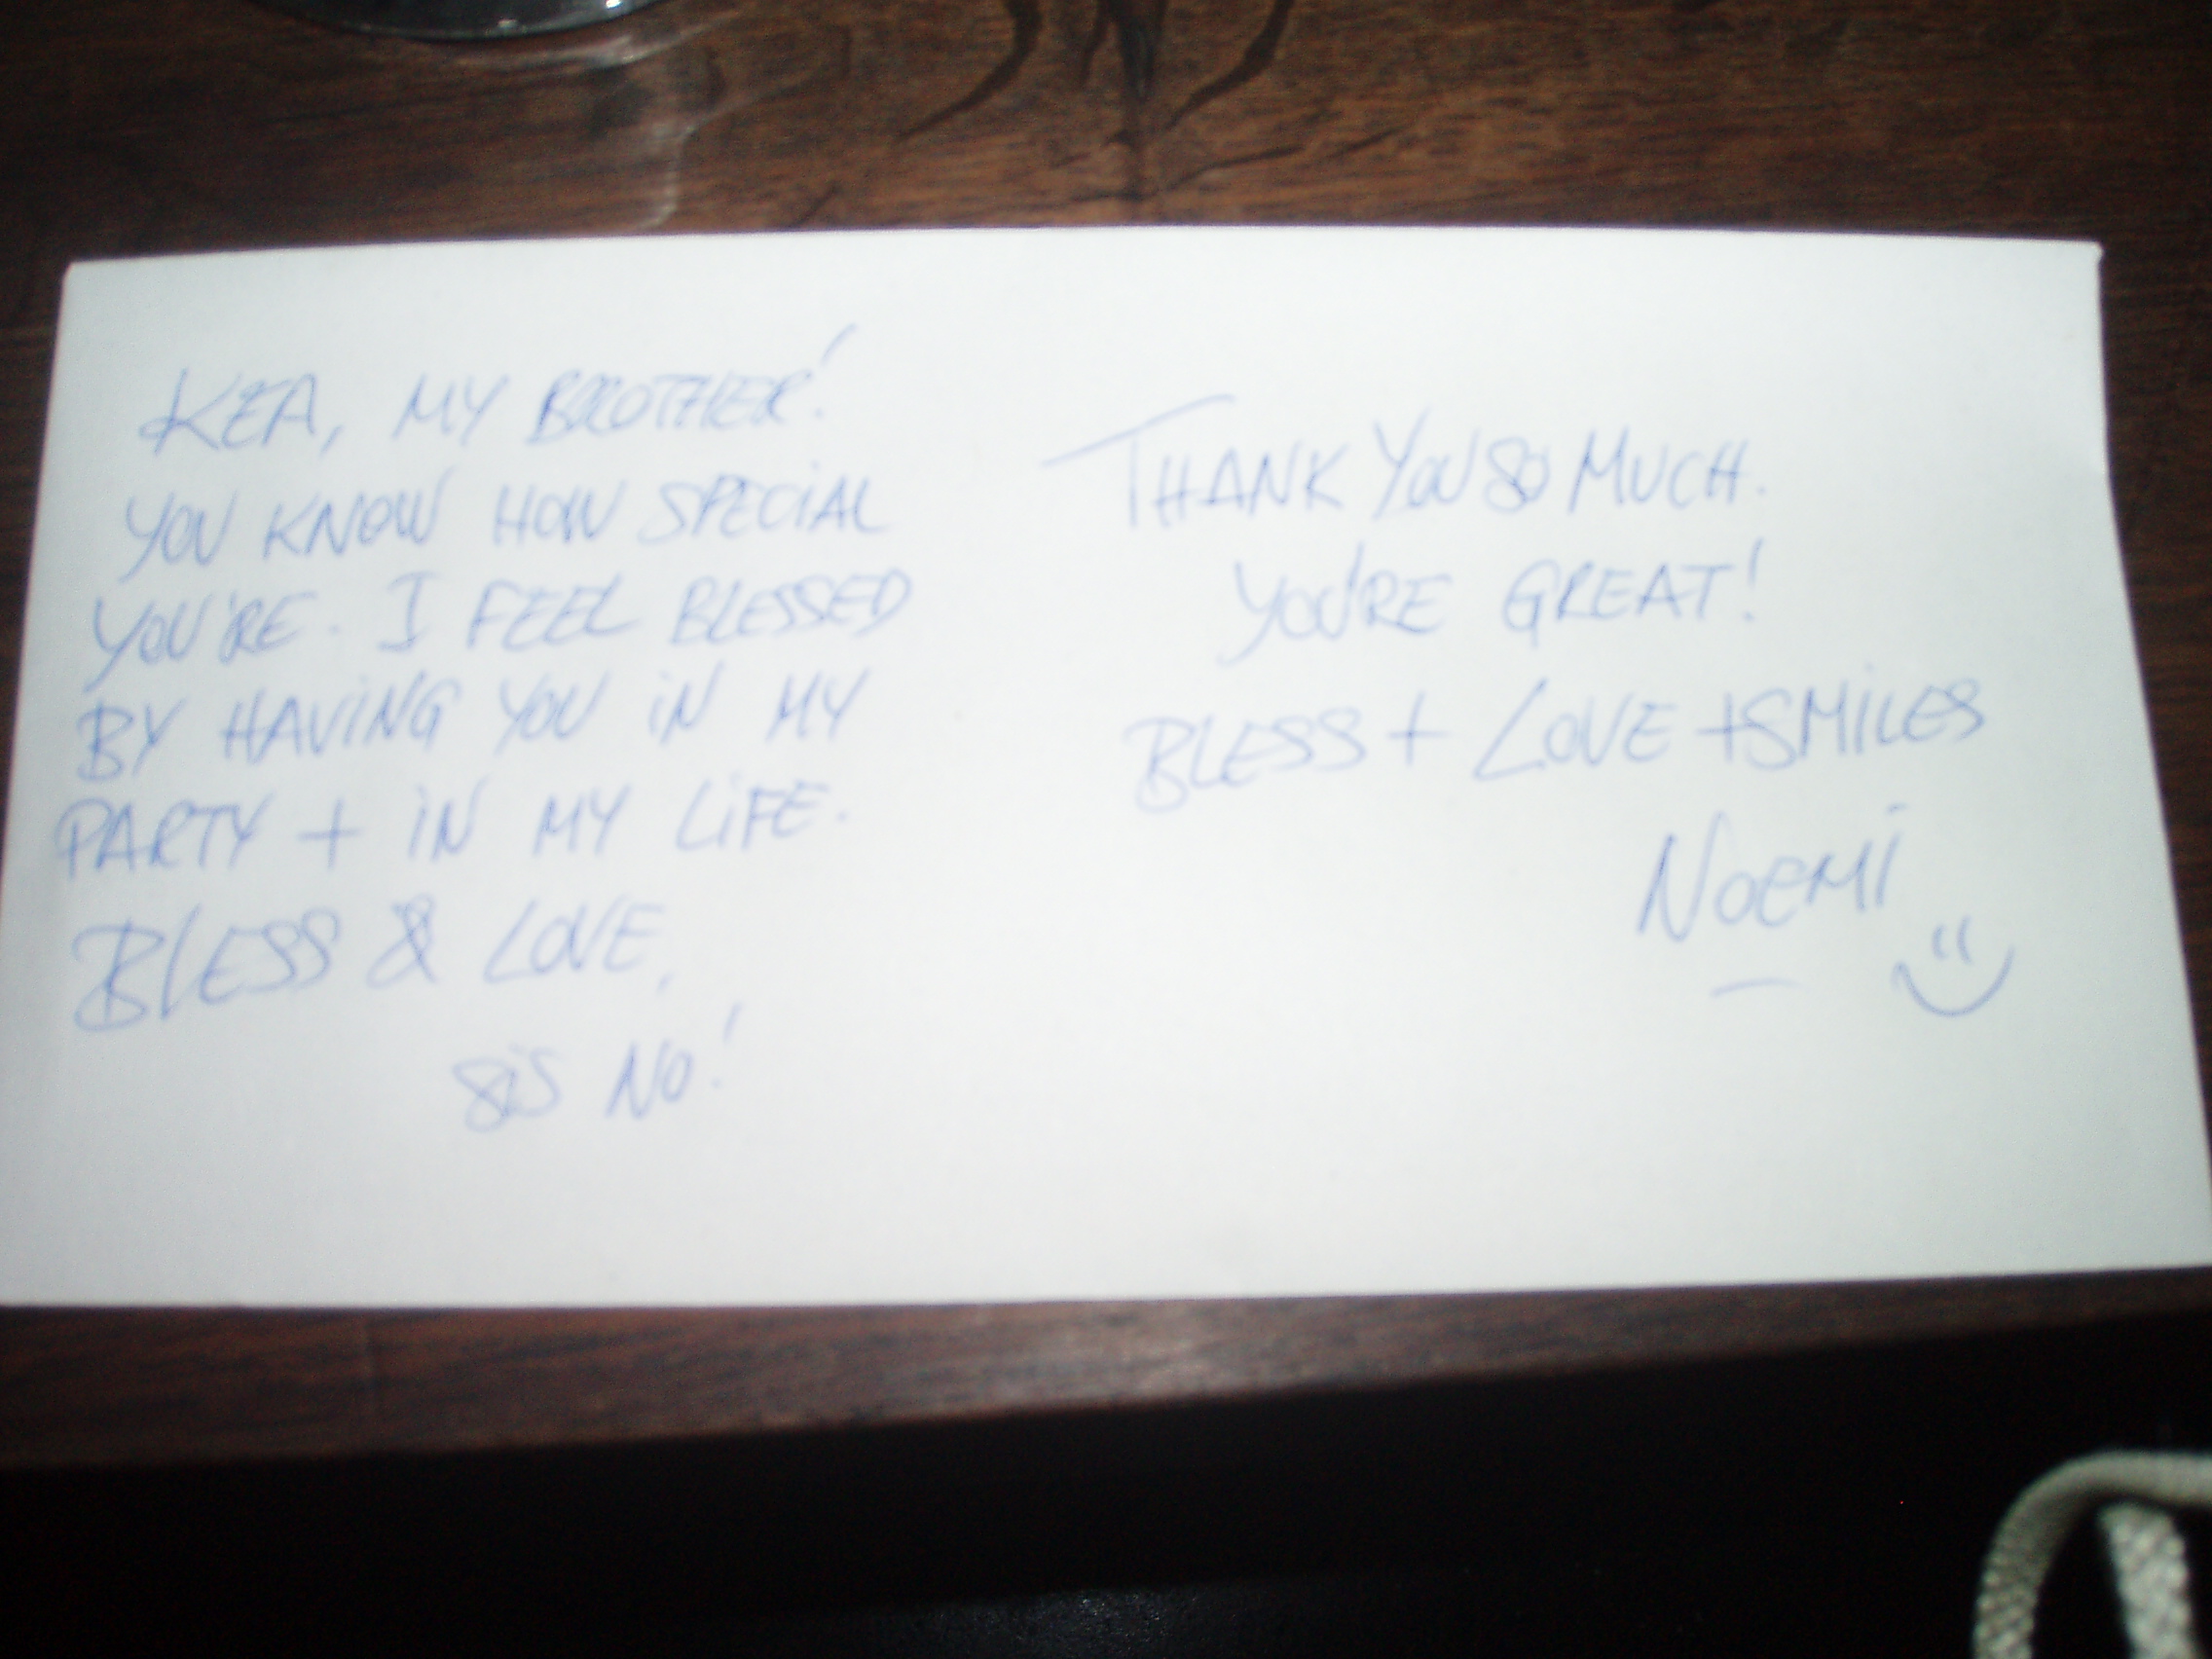 KEA, MY BROTHER!
YOU KNOW HOW SPECiAL
YOU'RE. I FEEL BLESSED
BY HAViNG YOU iN MY
PARTY + iN MY LiFE.
BLESS & LOVE,
SiS NO!
THANK YOU SO MUCH.
YOU'RE GREAT!
BLESS + LOVE + SMiLES
NOEMi